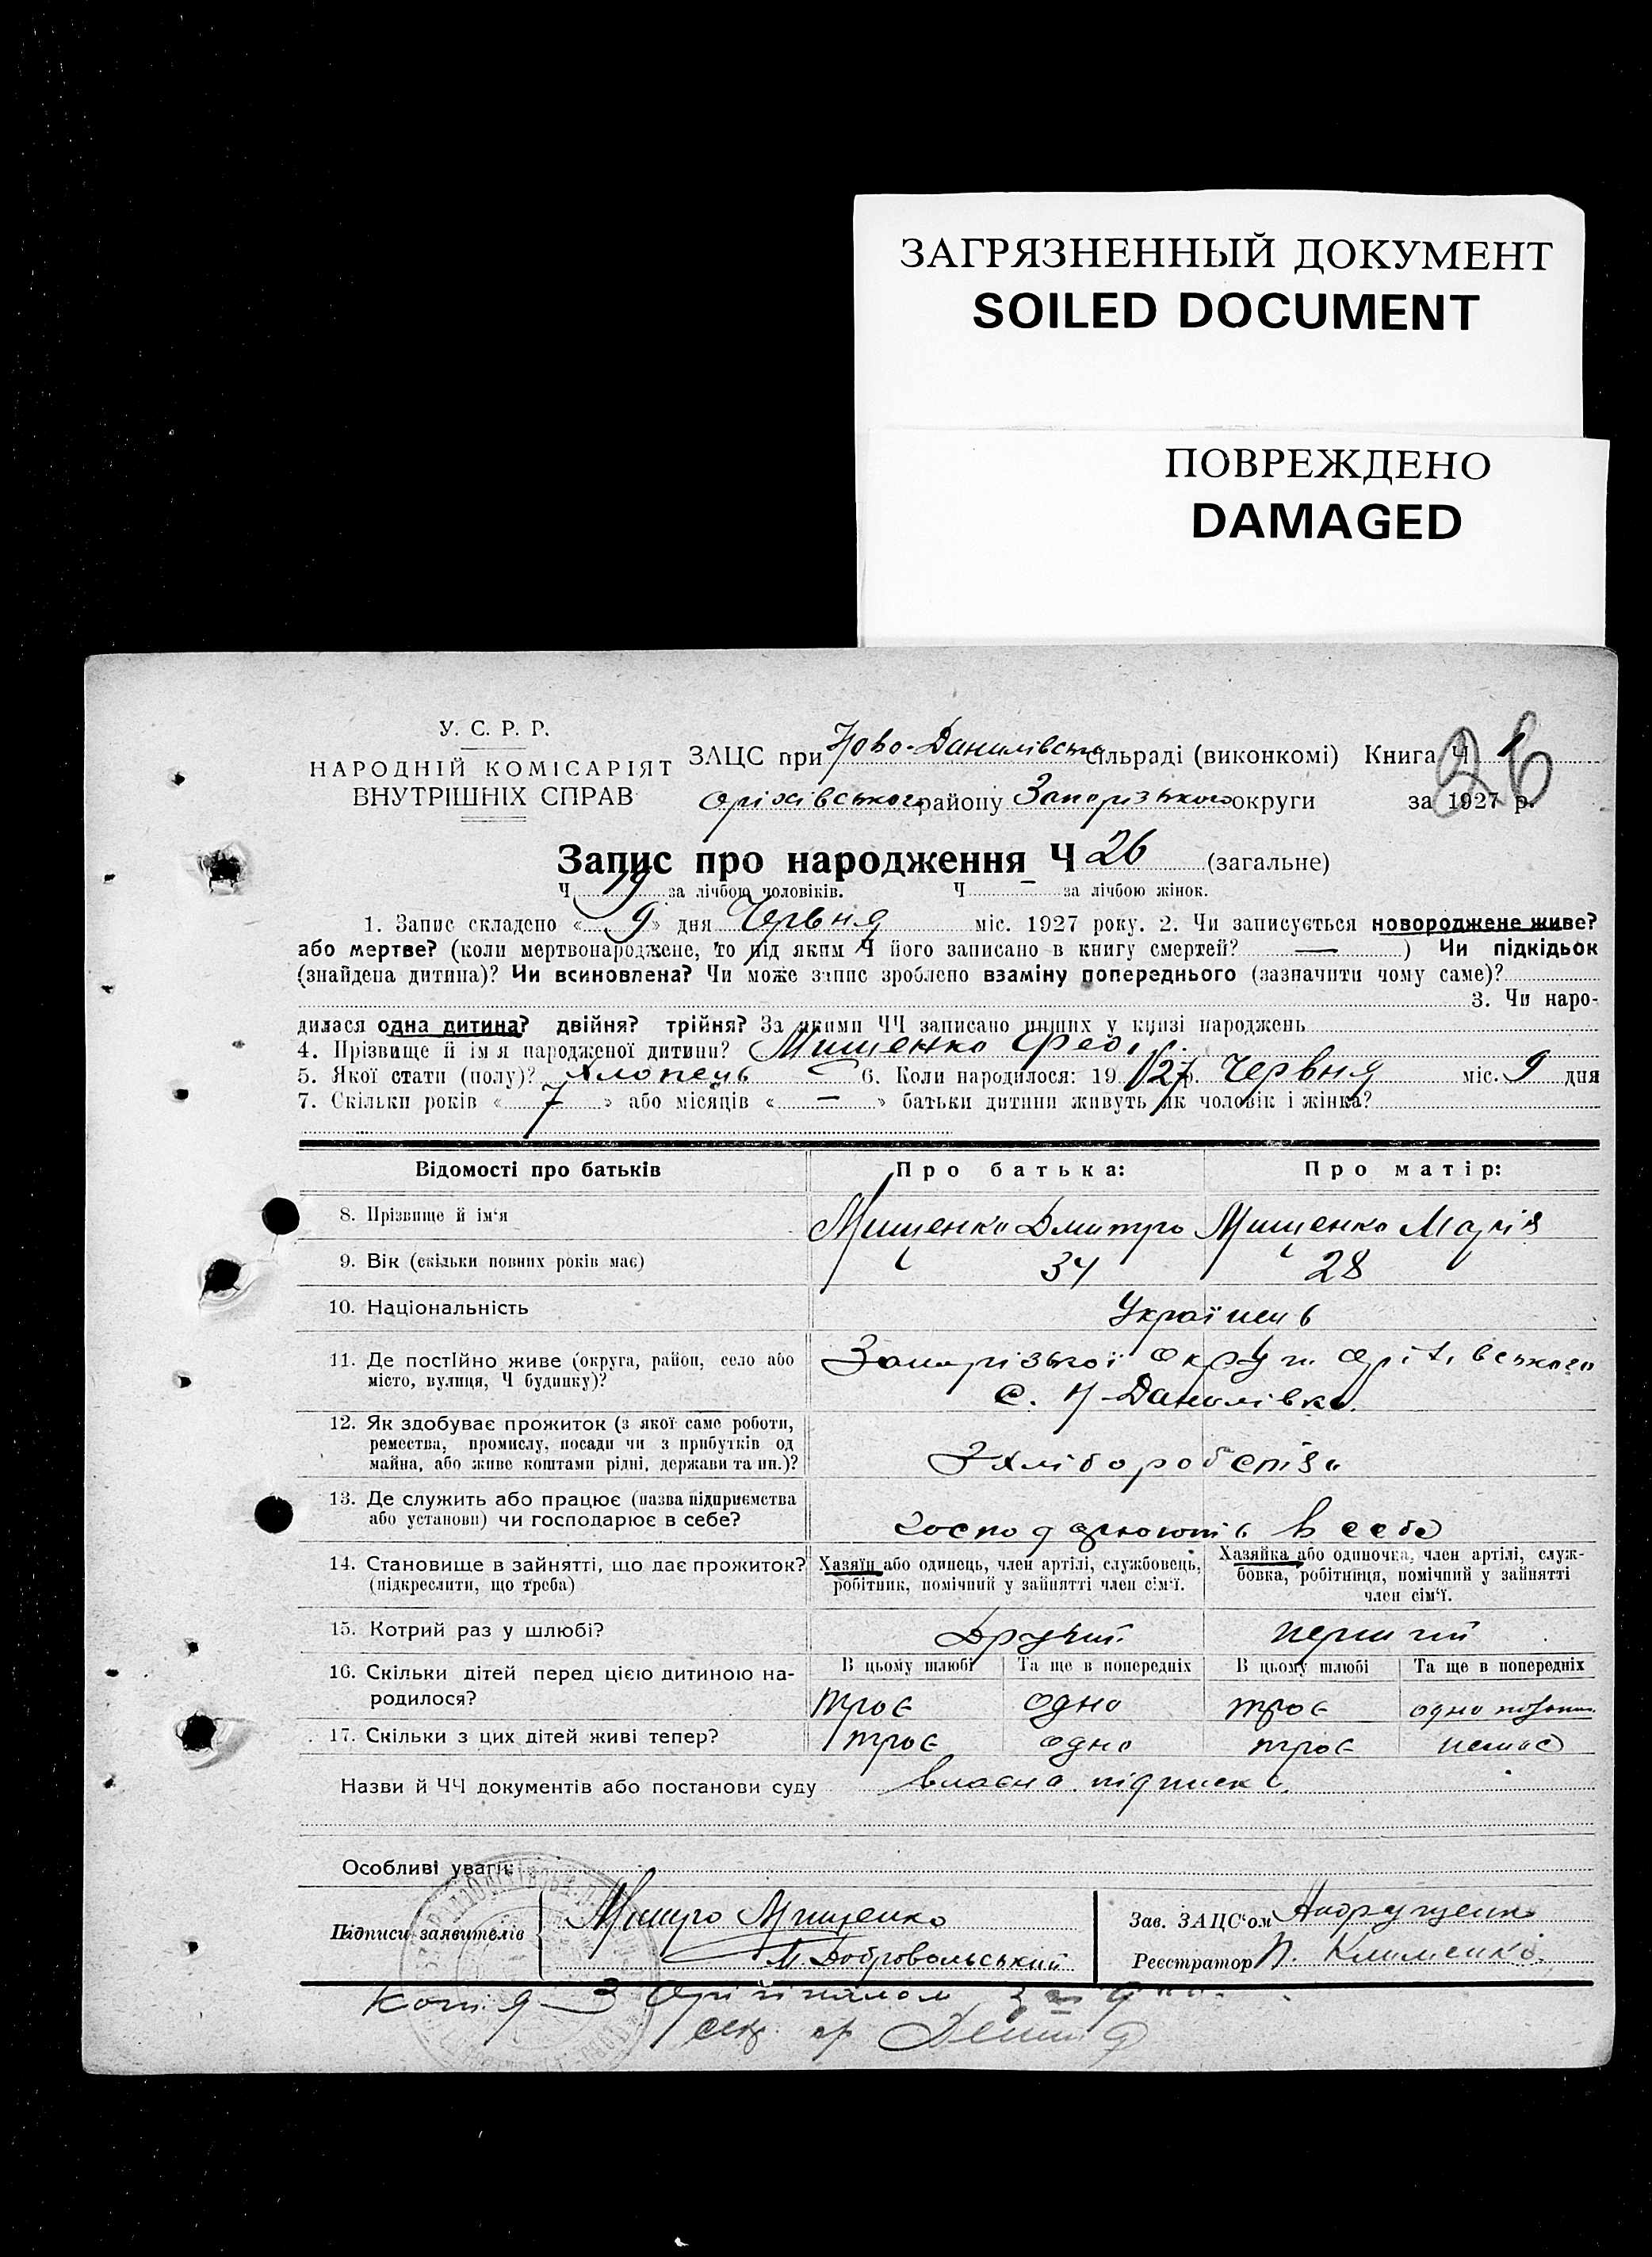 ЗАГРЯЗНЕННЫЙ ДОКУМЕНТ
SOILED DOCUMENT
ПОВРЕЖДЕНО
DAMAGED
У. С. Р. Р.
НАРОДНІЙ КОМІСАРІЯТ
ВНУТРІШНІХ СПРАВ
ЗАЦС при Ново-Данилівськ сільраді (виконкомі) Книга Ч 1
Оріхівського району Запорізького округи за 1927 р.
26
Запис про народження Ч 26 (загальне)
Ч 19 за лічбою чоловіків. Ч — за лічбою жінок.
1. Запис складено «9» дня Червня міс. 1927 року. 2. Чи записується новороджене живе?
або мертве? (коли мертвонароджене, то під яким Ч його записано в книгу смертей? — ) Чи підкідьок
(знайдена дитина)? Чи всиновлена? Чи може запис зроблено взаміну попереднього (зазначити чому саме)?
3. Чи наро-
дилася одна дитина? двійня? трійня? За якими ЧЧ записано инших у книзі народжень
4. Прізвище й ім'я народженої дитини? Мищенко
5. Якої стати (полу)? Хлопець 6. Коли народилося: 19 27 р. Червня міс. 9 дня
7. Скільки років « 7 » або місяців « — » батьки дитини живуть як чоловік і жінка?
Відомості про батьків Про батька: Про матір:
8. Прізвище й ім'я Мищенко Дмитро Мищенко Марія
9. Вік (скільки повних років має) 34 28
10. Національність Українець
11. Де постійно живе (округа, район, село або Запорізької округи Оріхівського
місто, вулиця, Ч будинку)? С. Н-Данилівка
12. Як здобуває прожиток (з якої саме роботи,
ремества, промислу, посади чи з прибутків од
майна, або живе коштами рідні, держави та ин.)? З хліборобства
13. Де служить або працює (назва підприємства
або установи) чи господарює в себе? господарюють в себе
14. Становище в зайнятті, що дає прожиток? Хазяїн або одинець, член артілі, службовець, Хазяйка або одиночка, член артілі, служ-
(підкреслити, що треба) робітник, помічний у зайнятті член сім'ї. бовка, робітниця, помічний у зайнятті
член сім'ї.
15. Котрий раз у шлюбі? Другий перший
16. Скільки дітей перед цією дитиною на- В цьому шлюбі Та ще в попередніх В цьому шлюбі Та ще в попередніх
родилося? троє одно троє одно
17. Скільки з цих дітей живі тепер? троє одно троє немає
Назви й ЧЧ документів або постанови суду власна підписка
Особливі уваги:
Підписи заявителів Мищенко Зав. ЗАЦС'ом Андрущенко
М. Добровольський Реєстратор П. Клименко
Копія З Оригіналом